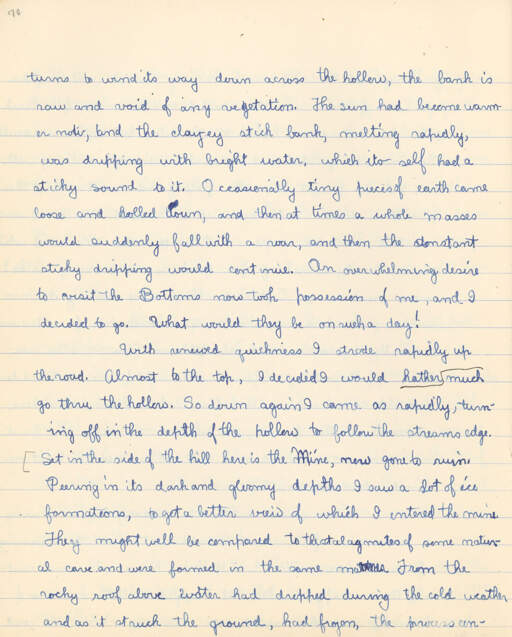 turns to wind its way down across the hollow, the bank is
raw and void of any vegetation. The sun had become warm-
er now, and the clayey stick bank, melting rapidly,
was dripping with bright water, which its self had a
sticky sound to it. Occasionally tiny pieces of earth came
loose and rolled down, and then at times a whole masses
would suddenly fall with a roar, and then the constant
sticky dripping would continue. An overwhelming desire
to visit the Bottoms now took possession of me, and I
decided to go. What would they be on such a day!
With renewed quickness I strode rapidly up
the road. Almost to the top, I decided I would rather much
go thru the hollow. So down again I came as rapidly, turn-
ing off in the depth of the hollow to follow the streams edge.
[Set in the side of the hill here is the Mine, now gone to ruin.
Peering in its dark and gloomy depths I saw a lot of ice
formations, to get a better view of which I entered the mine
They might well be compared to the stalagmites of some natur-
al cave and were formed in the same From the
rocky roof above water had dripped during the cold weather
and as it struck the ground, had frozen, the process con-